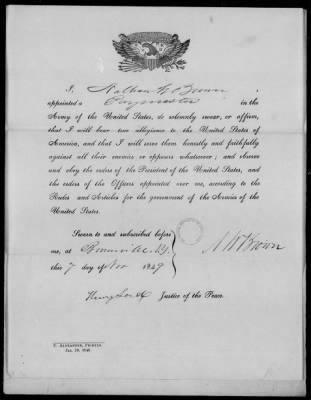 I, Nathan W. Brown,
appointed a Paymaster in the
Army of the United States, do solemnly swear, or affirm,
that I will bear true allegiance to the United States of
America, and that I will serve them honestly and faithfully
against all their enemies or opposers whatsoever; and observe
and obey the orders of the President of the United States, and
the orders of the Officers appointed over me, according to the
Rules and Articles for the government of the Armies of the
United States.
Sworn to and subscribed before
me, at N.Y.
this 7 day of Nov 1849
N W Brown
Henry Justice of the Peace.
C. Alexander, Printer.